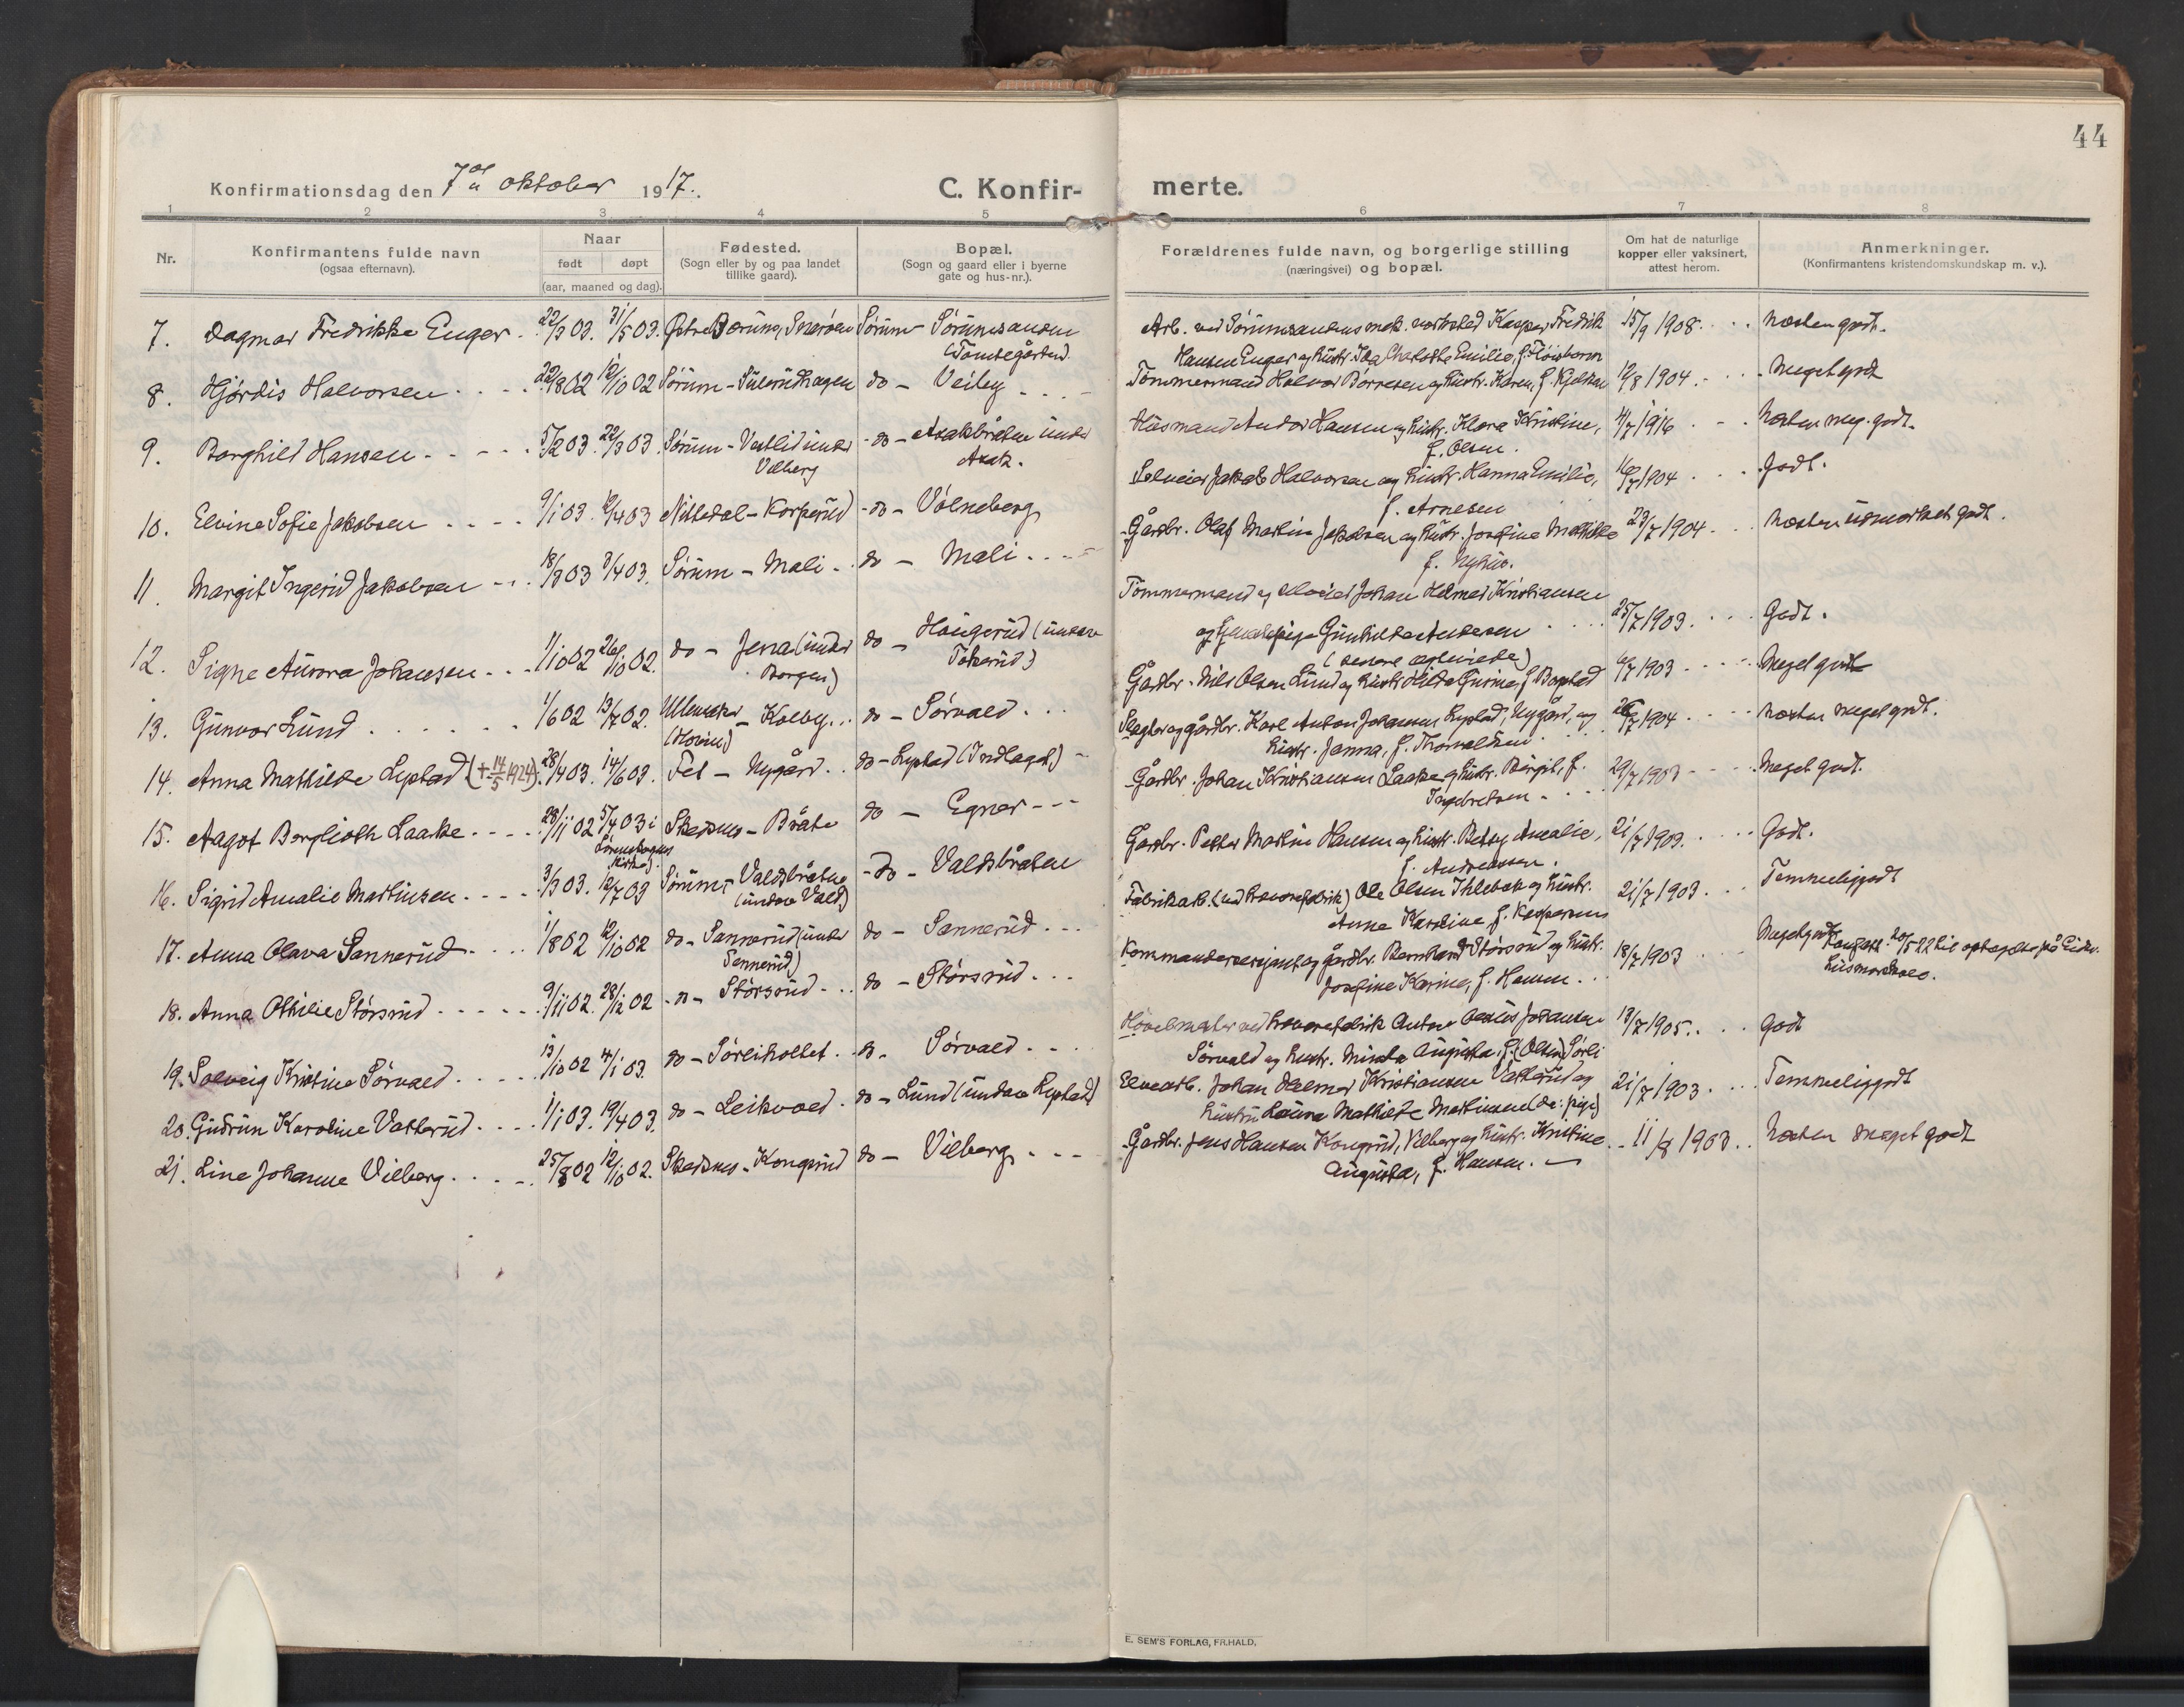 44
Konfirmationsdag den 7de oktober 1917.
C. Konfir- merte.
1 2 3 4 5 6 7 8
Nr.
Konfirmantens fulde navn
(ogsaa efternavn).
Naar
født døpt
(aar, maaned og dag).
Fødested.
(Sogn eller by og paa landet
tillike gaard).
Bopæl.
(Sogn og gaard eller i byerne
gate og hus-nr.).
Forældrenes fulde navn, og borgerlige stilling
(næringsvei) og bopæl.
Om hat de naturlige
kopper eller vaksinert,
attest herom.
Anmerkninger.
(Konfirmantens kristendomskundskap m. v.).
7. Dagmar Fredrikke Enger 22/3 03. 31/5 03. Østre Bærum, Snarøen Sørum - Sørumsanden
(Tomtegården)
Arb. ved Sørumsandens mek. verksted Kasper Fredrik 15/9 1908. Næsten godt.
Hansen Enger og hustr. Ida Charlotte Emilie, f. Fløisbonn
8. Hjørdis Halvorsen 22/8 02 12/10 02 Sørum - Sulerudhagen do - Veiby
Tømmermand Halvor Børresen og hustr. Karen, f. Kjelsen 12/8 1904. Meget godt
9. Borghild Hansen 5/2 03. 22/3 03. Sørum - Vestlid under -do- Asakbråten under
Vilberg Asak.
Husmand Andor Hansen og hustr. Klara Kristine, 4/7 1916 Næsten meg. godt.
f. Olsen.
10. Elvine Sofie Jakobsen 9/1 03. 12/4 03 Nittedal - Korperud -do- Vølneberg
Selveier Jakob Halvorsen og hustr. Hanna Emilie, 16/7 1904 Godt.
f. Arnesen
11. Margit Ingerid Jakobsen 18/2 03 3/4 03. Sørum - Mali do - Mali
Gårdbr. Olaf Martin Jakobsen og hustr. Josefine Mathilde 23/7 1904 Næsten udmerket godt.
f. Nyhus.
12. Signe Aurora Johansen 1/10 02 26/10 02. do - Jena (under do - Haugerud (under
Borgen) Tokerud)
Tømmermand og Johan Helmer Kristiansen
og pige Gunhilda Andersen 25/7 1903. Godt.
(senere egteviede)
13. Gunvor Lund 1/6 02 13/7 02. Ullensaker - Kolby do - Sørvald
(Hovin)
Gårdbr. Nils Olsen Lund og hustr. Hilda Gurine, f. Bogstad 4/7 1903 Meget godt
14. Anna Mathilde Lystad (+ 14/5 1924) 28/4 03. 14/6 03. Fet - Nygård do - Lystad (Indlaget)
Slagter og gårdbr. Karl Anton Johansen Lystad, Nygård, og 26/7 1904 Næsten meget godt.
hustr. Janna, f. Thorvaldsen
15. Aagot Bergljoth Laake 28/11 02 5/4 03 i Skedsmo - Bråte do - Egner
Lørenskogens
kirke).
Gårdbr. Johan Kristiansen Laake og hustr. Birgit, f. 29/7 1903 Meget godt.
Ingebretsen
16. Sigrid Amalie Martinsen 3/3 03. 12/7 03 Sørum - Valdsbråten -do- Valdsbråten
(under Vald)
Gårdbr. Petter Martin Hansen og hustr. Betsy Amalie, 21/7 1903. Godt.
f. Andreassen.
17. Anna Olava Sannerud 1/8 02 12/10 02 do - Sannerud (under do - Sannerud
Sannerud)
Fabrikarb. (ved kravefabrik) Ole Olsen Ihlebæk og hustr. 21/7 1903. Temmelig godt
Anne Karoline f. Kaspersen
18. Anna Othilie Størsrud 9/11 02. 28/12 02 -do- Størsrud do - Størsrud
Kommandersersjant og gårdbr. Bernhard Størsrud og hustr. 18/7 1903 Meget godt
Josefine Karine, f. Hansen. 20/5 22 til optagelse på Eidsv.
husmorskole.
19. Solveig Kristine Sørvald 13/10 02 4/1 03. do - Sørliholtet do. Sørvald
Høvelmester ved kravefabrik Anton Johansen 13/7 1905. godt
Sørvald og hustr. Minda Augusta, f. (Olsen) Sørli
20. Gudrun Karoline Vatterud 1/1 03. 19/4 03. do - Leikvold do - Lund (under Lystad)
Elvearb. Johan Helmer Kristiansen Vatterud og 21/7 1903. Temmelig godt
hustru Laura Mathilde Martinsen (da: pige)
21. Line Johanne Vilberg 25/8 02 12/10 02. Skedsmo - Kongsrud do - Vilberg
Gårdbr. Jens Hansen Kongsrud, Vilberg og hustr. Kristine 11/8 1903 Næsten meget godt
Augusta, f. Hansen.
E. SEM'S FORLAG, FR.HALD.